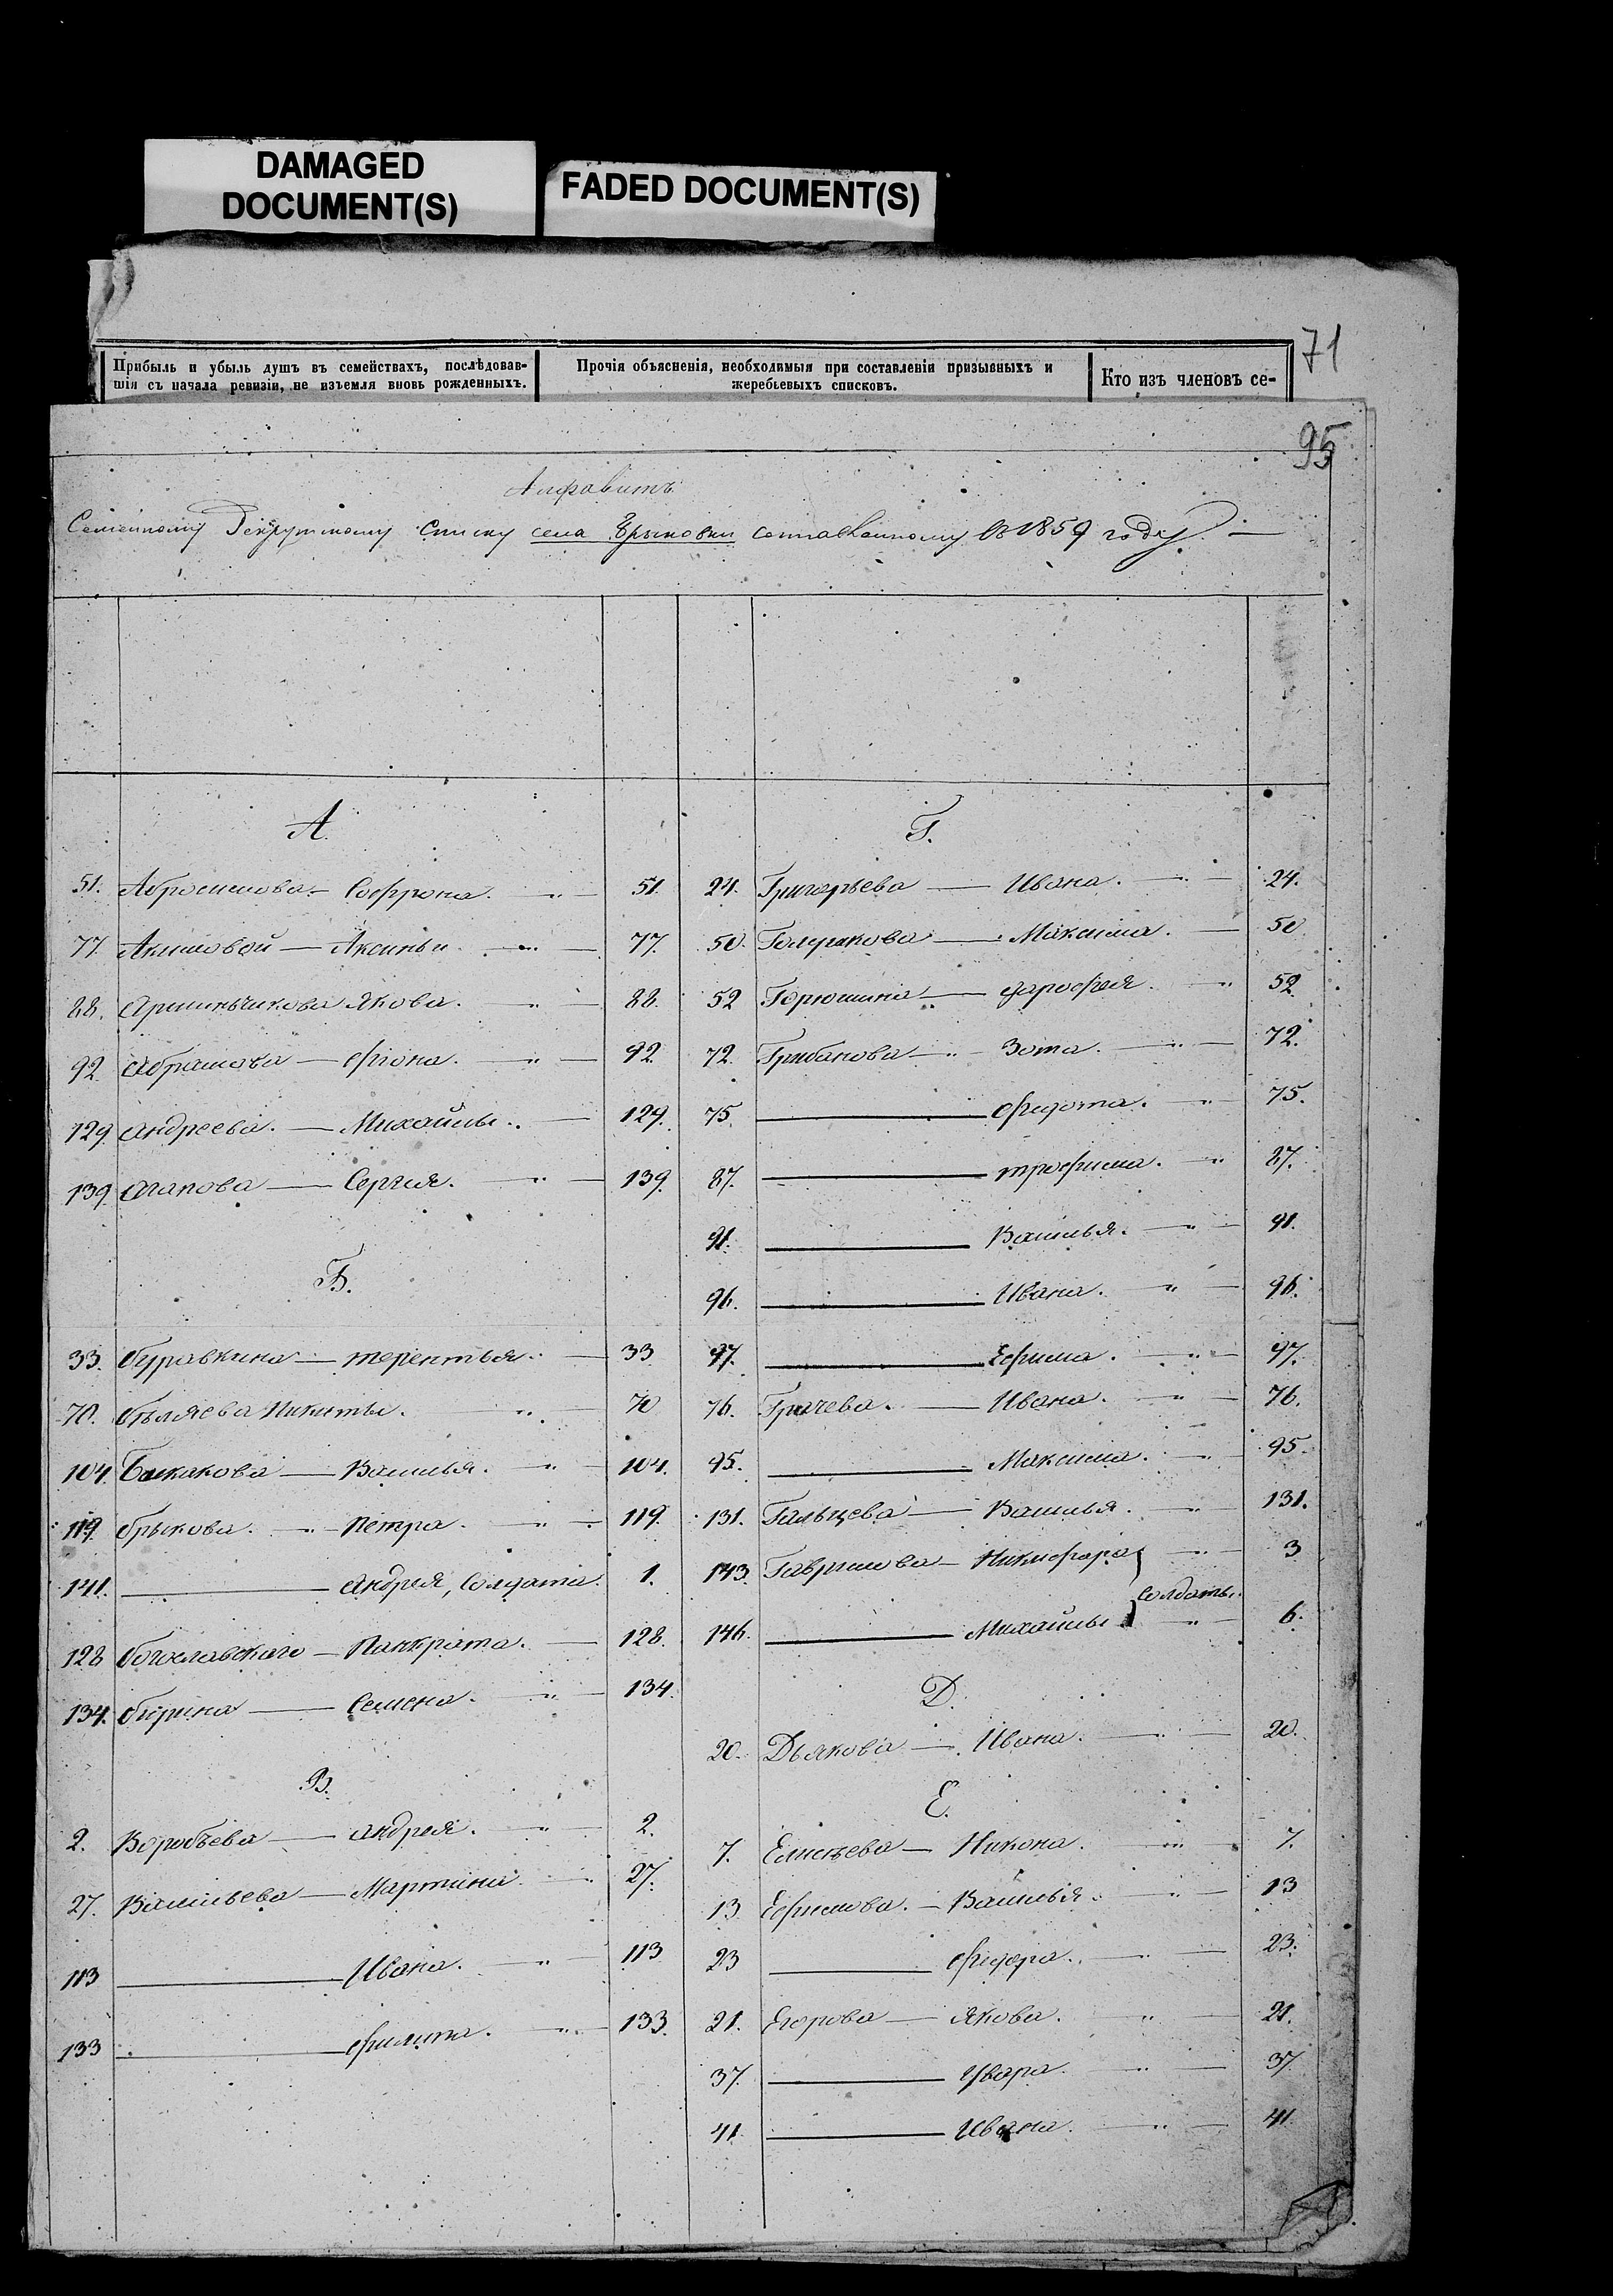 DAMAGED
DOCUMENT(S)
FADED DOCUMENT(S)
71
Прибыль и убыль душъ въ семействахъ, послѣдовав-
шія съ начала ревизіи, не изъемля вновь рожденныхъ.
Прочія объясненія, необходимыя при составленіи призывныхъ и
жеребьевыхъ списковъ.
Кто изъ членовъ се-
95
Алфавитъ
Семейному Рекрутскому списку села Брыковки составленному въ 1859 году. —
А.
51. Абросимова — Софрона. — „ 51.
77. Акимовой — Аксиньи. — „ — 77.
88. Арминьчикова Якова. — „ — 88.
92. Абрамова — Фіона. — „ — 92.
129. Андреева. — Михайлы. — 129.
139. Агапова — Сергея. — „ — 139.
Б.
33. Буравкина — Терентья. — 33
70. Бѣляева Никиты. „ 70
104. Бакакова — Василья. — „ — 104.
119. Брыкова. — „ — Петра. — „ — 119.
141. ——— Андрея, Солдата. 1.
128. Богославскаго — Панкрата. — 128.
134. Бирина — Семена. — „ — 134.
В.
2. Воробьева — Андрея. — „ — 2.
27. Васильева — Мартина. — „ 27.
113 ——— Ивана. — „ 113
133 ——— Филипа. — „ — 133.
Г.
24. Григорьева — Ивана. — „ — 24.
50. — Максима. — 50
52 Горюшина — Дарофея. — „ 52.
72. Грибанова — „ — Зота. — „ — 72.
75. ——— Федота. — „ 75.
87. ——— Трофима. — „ 87.
91. ——— Василья. — „ — 91.
96. ——— Ивана. — „ — 96.
97. ——— Ефима. — „ — 97.
76. Грачева. — Ивана. — „ — 76.
95. ——— Максима. — „ — 95.
131. Гальцева — Василья. — „ — 131.
143. Гаврилова — Никифора — „ — 3
солдаты.
146. ——— Михайлы — „ 6.
Д.
20. Дьякова — Ивана. — „ — 20.
Е.
7. Елисѣева — Никона. — „ — 7.
13 Ефимова. — Василья. — „ — 13
23 ——— Федора. — „ — 23.
21. Егорова — Якова. — „ — 21.
37. ——— Увара. — „ — 37
41. ——— Ивана. — „ — 41.